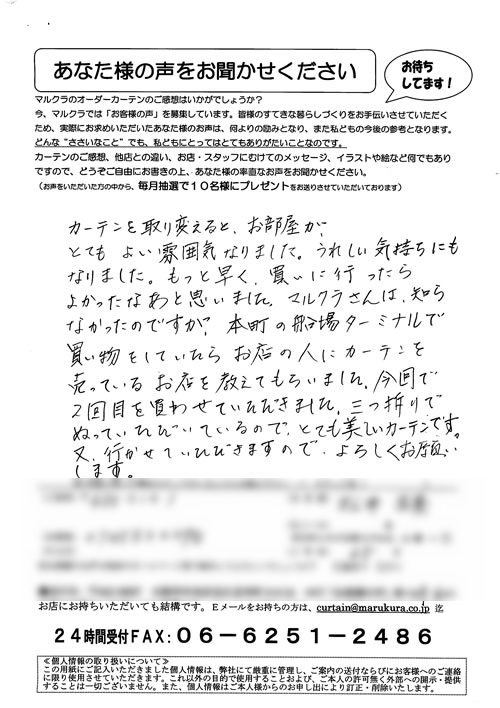 あなた様の声をお聞かせください
お待ち
してます!
マルクラのオーダーカーテンのご感想はいかがでしょうか?
今、マルクラでは「お客様の声」を募集しています。皆様のすてきな暮らしづくりをお手伝いさせていただく
ため、実際にお求めいただいたあなた様のお声は、何よりの励みとなり、また私どもの今後の参考となります。
どんな“ささいなこと”でも、私どもにとってはとてもありがたいことなのです。
カーテンのご感想、他店との違い、お店・スタッフにむけてのメッセージ、イラストや絵など何でもあり
ですので、どうぞご自由にお書きの上、あなた様の率直なお声をお聞かせください。
(お声をいただいた方の中から、毎月抽選で10名様にプレゼントをお送りさせていただいております)
カーテンを取り変えると、お部屋が、
とても よい雰囲気なりました。うれしい気持ちにも
なりました。もっと早く、買いに行ったら
よかったなあと思いました。マルクラさんは、知ら
なかったのですが、本町の船場ターミナルで
買い物をしていたら お店の人にカーテンを
売っている お店を教えてもらいました。今回で
2回目を買わせていただきました。三つ折りで
ぬっていただいているので、とても美しいカーテンです。
又、行かせていただきますので、よろしくお願い
します。
お店にお持ちいただいても結構です。Eメールをお持ちの方は、curtain@marukura.co.jp 迄
24時間受付FAX:06-6251-2486
≪個人情報の取り扱いについて≫
この用紙にご記入いただきました個人情報は、弊社にて厳重に管理し、ご案内の送付ならびにお客様へのご連絡
に限り使用させていただきます。これ以外の目的で使用することおよび、ご本人の許可無く外部への開示・提供
することは一切ございません。また、個人情報はご本人様からのお申し出により訂正・削除いたします。